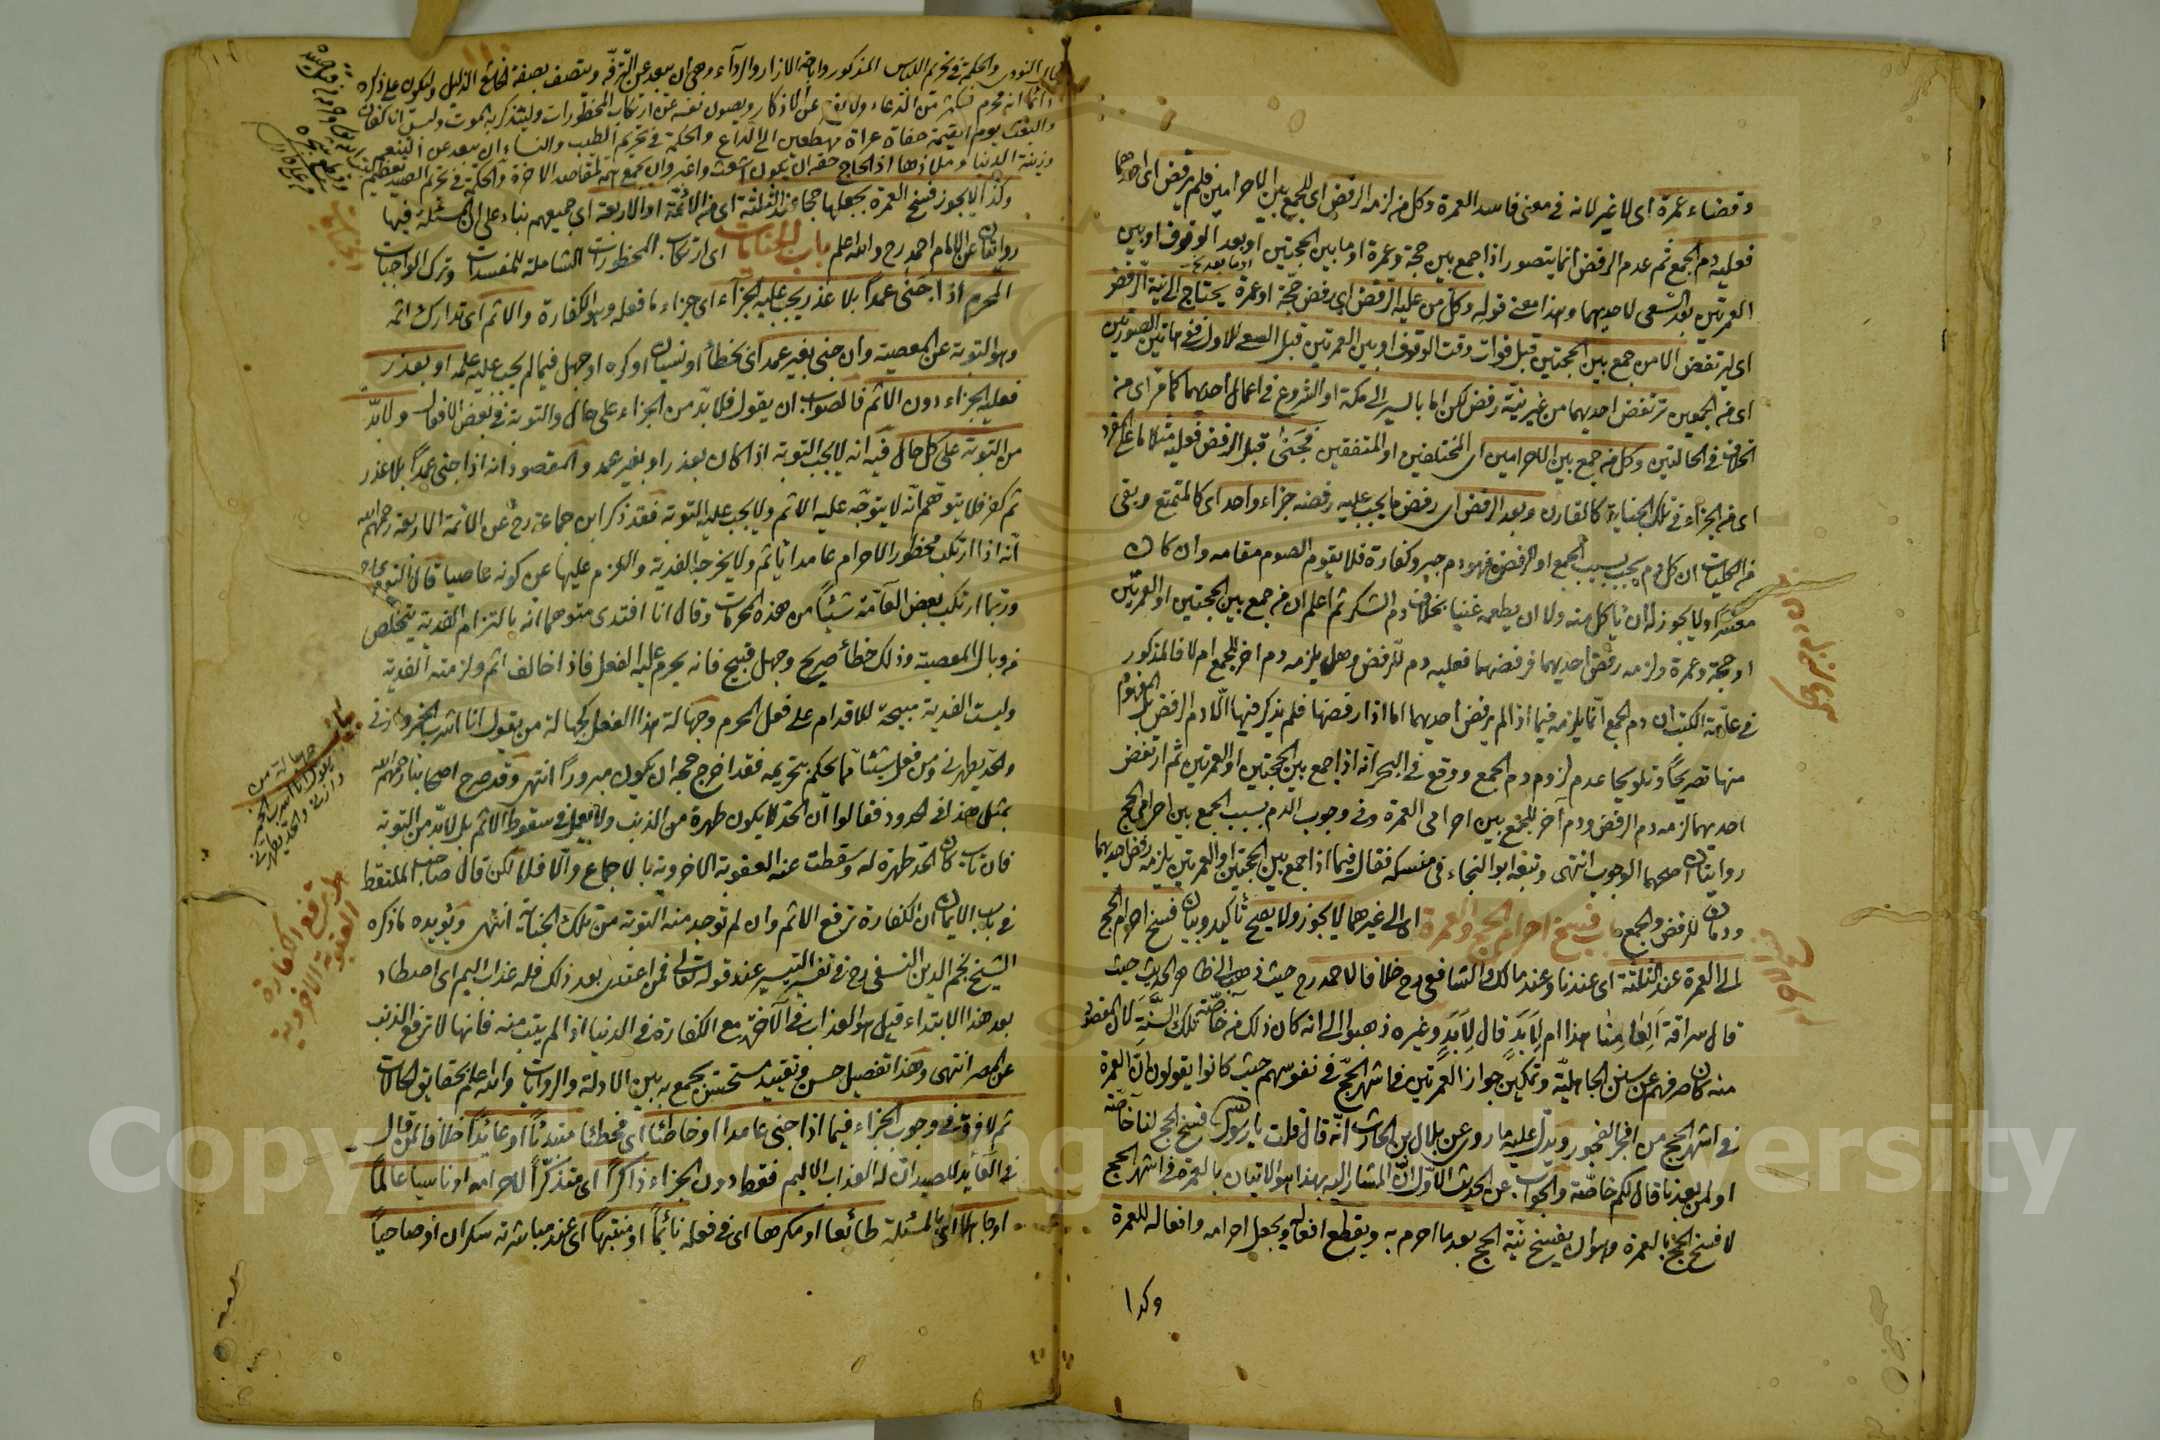 وقضاء عمرة اى لا غير لانه فى معنى فاسد العمرة وكل من لزمه الرفض اى للجمع بين الاحرامين فلم يرفض اى احدهما
فعليه دم الجمع ثم عدم الرفض انما يتصور اذا جمع بين حجة وعمرة او ما بين الحجتين او بعد الوقوف او بين
العمرتين بعد السعى لاحديهما وهذا معنى قوله وكل من عليه الرفض اى رفض حجة او عمرة يحتاج الى نية الرفض
اى ليرتفض الا من جمع بين الحجتين قبل فوات وقت الوقوف او بين العمرتين قبل السعى للاولى ففى هاتين الصورتين
اى من الجمعين ترتفض احديهما من غير نية رفض لكن اما بالسير الى مكة او الشروع فى اعمال احديهما كما مر اى من
الخلاف فى الحالتين وكل من جمع بين الاحرامين اى المختلفين او المتفقين فجنى قبل الرفض فعليه مثلا ما على المفرد
اى من الجزاء فى تلك الجناية كالقارن وبعد الرفض اى رفض ما يجب عليه رفضه جزاء واحد اى كالمتمتع وبقى
من الكليات ان كل دم يجب بسبب الجمع او الرفض فهو دم جبر وكفارة فلا يقوم الصوم مقامه وان كان
معسرا ولا يجوز له ان ياكل منه ولا ان يطعمه غنيا بخلاف دم الشكر ثم اعلم ان من جمع بين الحجتين او العمرتين
او حجة وعمرة ولزمه رفض احديهما فرفضهما فعليه دم للرفض وهل يلزمه دم اخر للجمع ام لا فالمذكور
فى عامة الكتب ان دم الجمع انما يلزمه فيما اذا لم يرفض احديهما اما اذا رفضها فلم يذكر فيها الا دم الرفض بل المفهوم
منها تصريحا وتلويحا عدم لزوم دم الجمع ووقع فى البحر انه اذا جمع بين الحجتين او العمرتين ثم ارتفض
احديهما لزمه دم الرفض ودم آخر للجمع بين احرامى العمرة وفى وجوب الدم بسبب الجمع بين احرامى الحج
روايتان اصحهما الوجوب انتهى وتبعه ابو النجاء فى منسكه فقال فيما اذا جمع بين الحجتين او العمرتين يلزمه رفض احديهما
ودمان للرفض والجمع باب فسخ احرام الحج والعمرة اى الى غيرهما لا يجوز ولا يصح تاكيد وبيان فسخ احرام الحج
الى العمرة عند الثلثة اى عندنا وعند مالك والشافعى رح خلافا لاحمد رح حيث ذهب الى ظاهر الحديث حيث
قال سراقة العامنا هذا ام للابد قال للابد وغيره ذهبوا الى انه كان ذلك من خاصة تلك السنة لان المقصود
منه كان صرفهم عن سنن الجاهلية وتمكين جواز العمرتين فى اشهر الحج فى نفوسهم حيث كانوا يقولون ان العمرة
فى اشهر الحج من افجر الفجور ويدل عليه ما روى عن بلال بن الحارث انه قال قلت يا رسول الله فسخ الحج لنا خاصة
او لمن بعدنا قال لكم خاصة والجواب عن الحديث الاول ان المشار اليه بهذا هو الاتيان بالعمرة فى اشهر الحج
لا فسخ الحج بالعمرة وهو ان يفسخ نية الحج بعد ما احرم به ويقطع افعاله ويجعل احرامه وافعاله للعمرة
وكذا
قال النووى والحكمة فى تحريم اللباس المذكور واباحة الازار والرداء وهى ان يبعد عن الترفه ويتصف بصفة الخاشع الذليل وليكون على ذكره
دائما انه محرم فيكثر من الدعاء ولا يفتر عن الاذكار ويصون نفسه عن ارتكاب المحظورات وليتذكر به الموت ولبس الاكفان
والبعث يوم القيمة حفاة عراة مهطعين الى الداع والحكمة فى تحريم الطيب والنساء ان يبعد عن التنعم
وزينة الدنيا وملاذها اذ الحاج حقه ان يكون اشعث واغبر وان يجمع همه لمقاصد الاخرة والحكمة فى تحريم الصيد تعظيم
وكذا لا يجوز فسخ العمرة بجعلها حجا عند الثلثة اى من الائمة او الاربعة اى جميعهم بناء على ان المسئلة فيها
روايتان عن الامام احمد رح والله اعلم باب الجنايات اى ارتكاب المحظورات الشاملة للمفسدات وترك الواجبات
المحرم اذا جنى عمدا بلا عذر يجب عليه الجزاء اى جزاء ما فعله وهو الكفارة والاثم اى تدارك اثمه
وهو التوبة عن المعصية وان جنى بغير عمد اى بخطأ او نسيان او كره او جهل فيما لم يجب عليه علمه او بعذر
فعليه الجزاء دون الاثم فالصواب ان يقول فلا بد من الجزاء على حال والتوبة فى بعض الافعال ولا بد
من التوبة على كل حال فيه انه لا يجب التوبة اذا كان بعذر او بغير عمد والمقصود انه اذا جنى عمدا بلا عذر
ثم كفر فلا يتوهم انه لا يتوجه عليه الاثم ولا يجب عليه التوبة فقد ذكر ابن جماعة رح عن الائمة الاربعة رحمهم الله
انه اذا ارتكب محظور الاحرام عامدا ياثم ولا يخرجه الفدية والعزم عليها عن كونه عاصيا قال النووى
وربما ارتكب بعض العامة شيئا من هذه المحرمات وقال انا افتدى متوهما انه بالتزام الفدية يتخلص
من وبال المعصية وذلك خطأ صريح وجهل قبيح فانه يحرم عليه الفعل فاذا خالف اثم ولزمته الفدية
وليست الفدية مبيحة للاقدام على فعل المحرم وجهالة هذا الفعل كجهالة من يقول انا اشرب الخمر وازنى
والحد يطهرنى ومن فعل شيئا مما يحكم بتحريمه فقد اخرج حجه ان يكون مبرورا انتهى وقد صرح اصحابنا رحمهم الله
بمثل هذا فى الحدود فقالوا ان الحد لا يكون طهرة من الذنب ولا يعمل فى سقوط الاثم بل لا بد من التوبة
فان تاب كان الحد طهرة له وسقطت عنه العقوبة الاخروية بالاجماع والا فلا لكن قال صاحب الملتقط
فى باب الايمان ان الكفارة ترفع الاثم وان لم توجد منه التوبة من تلك الجناية انتهى ويؤيده ما ذكره
الشيخ نجم الدين النسفى رح فى تفسير التيسير عند قوله تعالى فمن اعتدى بعد ذلك فله عذاب اليم اى اصطاد
بعد هذا الابتداء قيل هو العذاب فى الاخرة مع الكفارة فى الدنيا اذا لم يتب منه فانها لا ترفع الذنب
عن المصر انتهى وهذا تفصيل حسن وتقييد مستحسن يجمع به بين الادلة والروايات والله اعلم بحقايق الحالات
ثم لا فرق فى وجوب الجزاء فيما اذا جنى عامدا او خاطئا اى مخطئا مبتدئا او عائدا خلافا لمن قال
فى العائد للصيد ان له العذاب الاليم فقط دون الجزاء ذاكرا اى متذكرا لاحرامه او ناسيا عالما
او جاهلا اى بالمسئلة طائعا او مكرها اى فى فعله نائما او منتبها اى عند مباشرته سكران او صاحيا
الجنايات
جهالة من
يقول انا اشرب الخمر
وازنى والحد يطهرنى
ترفع الكفارة
العقوبة الاخروية
Copyright © King Saud University